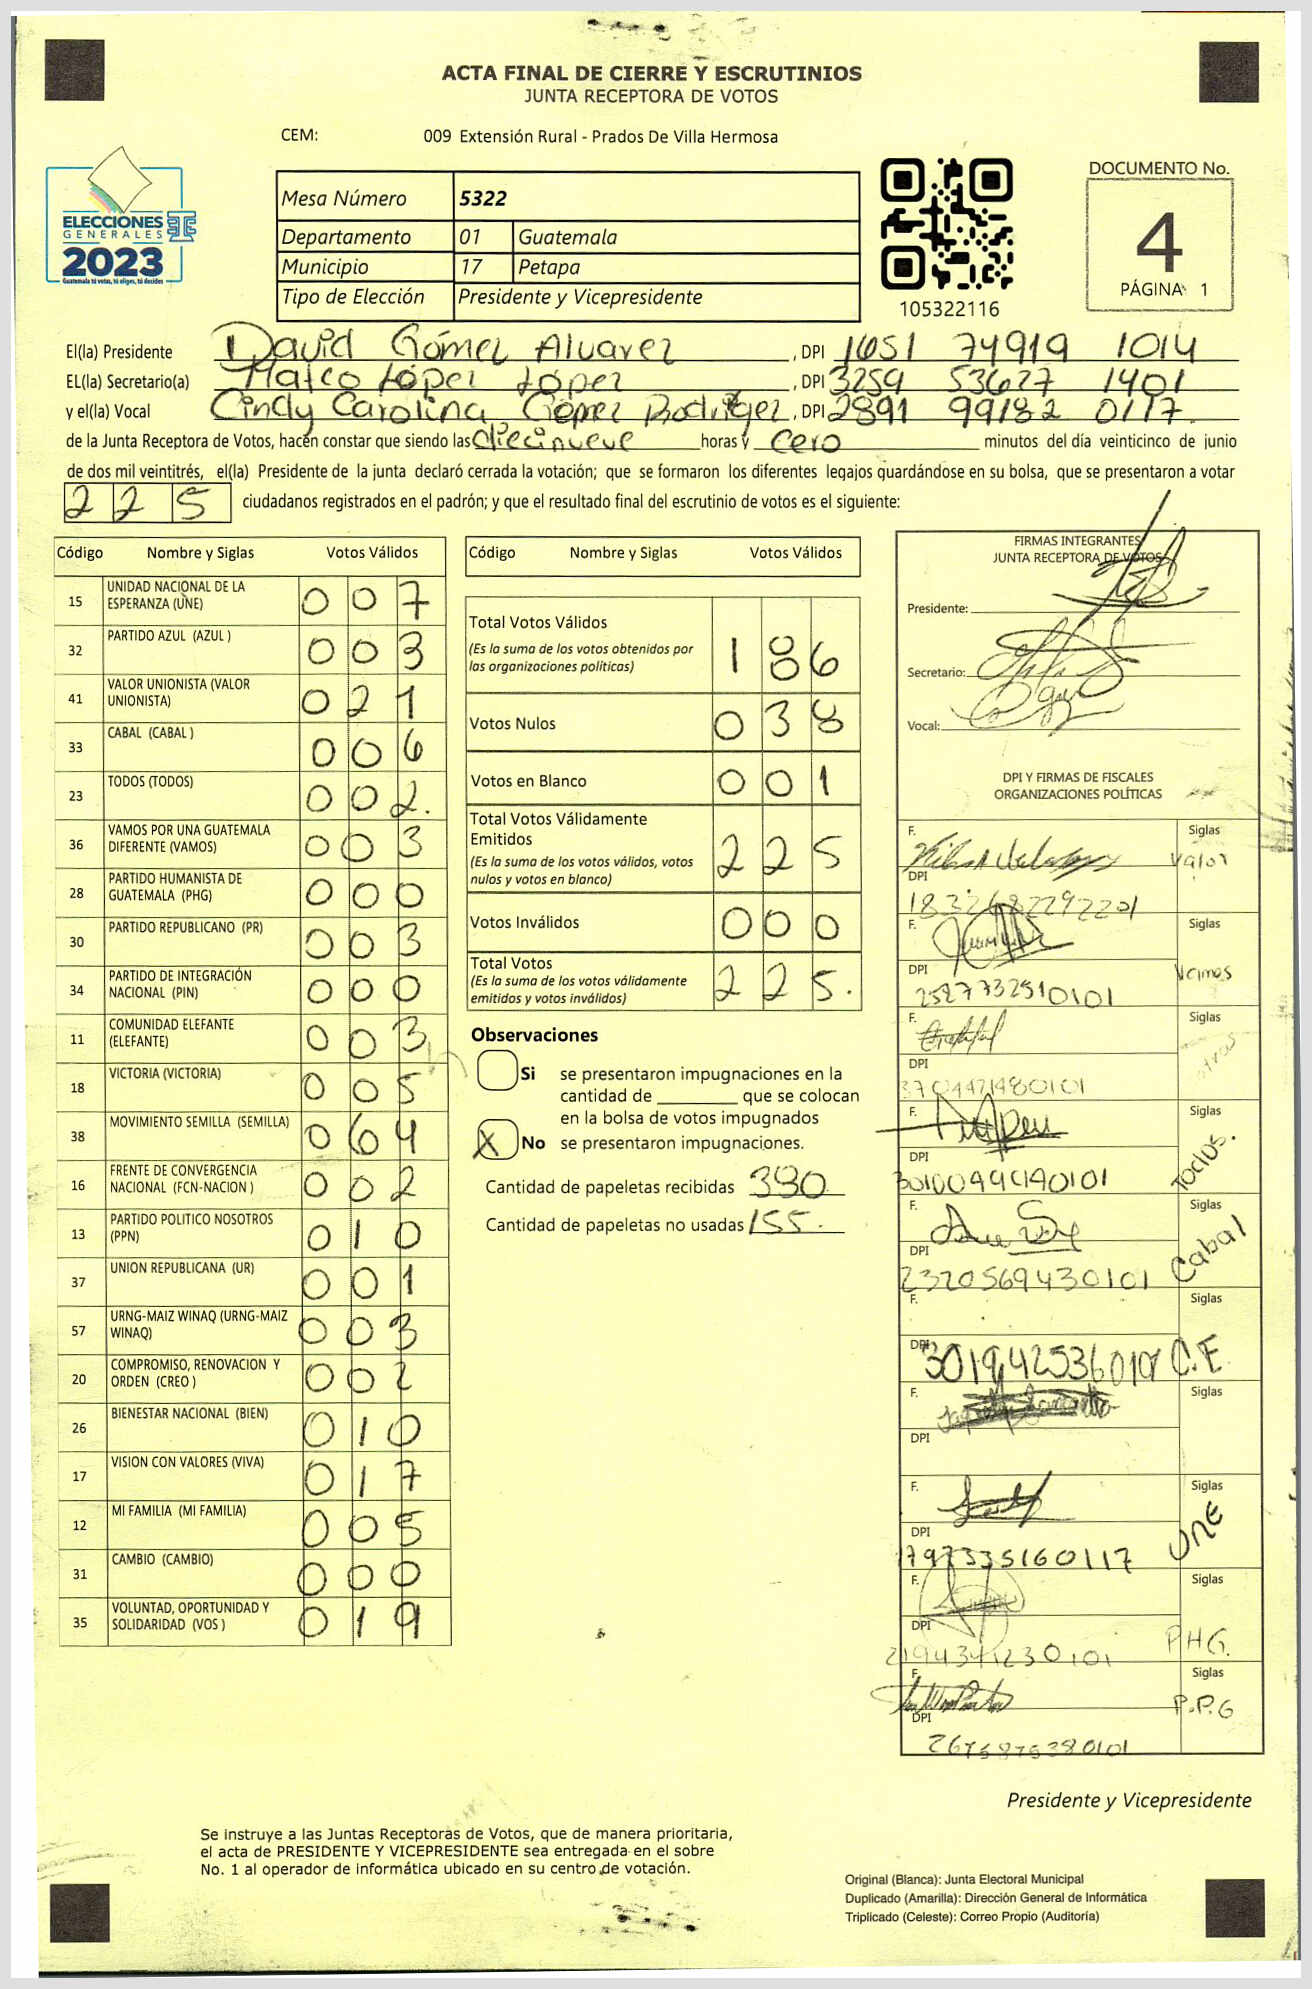 ACTA FINAL DE CIERRE Y ESCRUTINIOS
JUNTA RECEPTORA DE VOTOS
CEM: 009 Extensión Rural - Prados De Villa Hermosa
ELECCIONES
GENERALES
2023
Guatemala tú votas, tú eliges, tú decides
Mesa Número 5322
Departamento 01 Guatemala
Municipio 17 Petapa
Tipo de Elección Presidente y Vicepresidente
105322116
DOCUMENTO No.
4
PÁGINA 1
El(la) Presidente David Gómez Alvarez, DPI 1651 74919 1014
EL(la) Secretario(a) Mateo López López, DPI 3259 53627 1401
y el(la) Vocal Cindy Carolina Gómez Rodriguez, DPI 2891 99182 0117
de la Junta Receptora de Votos, hacen constar que siendo las diecinueve horas y cero minutos del día veinticinco de junio
de dos mil veintitrés, el(la) Presidente de la junta declaró cerrada la votación; que se formaron los diferentes legajos guardándose en su bolsa, que se presentaron a votar
2 2 5 ciudadanos registrados en el padrón; y que el resultado final del escrutinio de votos es el siguiente:
Código Nombre y Siglas Votos Válidos
15 UNIDAD NACIONAL DE LA ESPERANZA (UNE) 0 0 7
32 PARTIDO AZUL (AZUL ) 0 0 3
41 VALOR UNIONISTA (VALOR UNIONISTA) 0 2 1
33 CABAL (CABAL ) 0 0 6
23 TODOS (TODOS) 0 0 2.
36 VAMOS POR UNA GUATEMALA DIFERENTE (VAMOS) 0 0 3
28 PARTIDO HUMANISTA DE GUATEMALA (PHG) 0 0 0
30 PARTIDO REPUBLICANO (PR) 0 0 3
34 PARTIDO DE INTEGRACIÓN NACIONAL (PIN) 0 0 0
11 COMUNIDAD ELEFANTE (ELEFANTE) 0 0 3
18 VICTORIA (VICTORIA) 0 0 5
38 MOVIMIENTO SEMILLA (SEMILLA) 0 6 4
16 FRENTE DE CONVERGENCIA NACIONAL (FCN-NACION ) 0 0 2
13 PARTIDO POLITICO NOSOTROS (PPN) 0 1 0
37 UNION REPUBLICANA (UR) 0 0 1
57 URNG-MAIZ WINAQ (URNG-MAIZ WINAQ) 0 0 3
20 COMPROMISO, RENOVACION Y ORDEN (CREO ) 0 0 2
26 BIENESTAR NACIONAL (BIEN) 0 1 0
17 VISION CON VALORES (VIVA) 0 1 7
12 MI FAMILIA (MI FAMILIA) 0 0 5
31 CAMBIO (CAMBIO) 0 0 0
35 VOLUNTAD, OPORTUNIDAD Y SOLIDARIDAD (VOS ) 0 1 9
Código Nombre y Siglas Votos Válidos
Total Votos Válidos
(Es la suma de los votos obtenidos por
las organizaciones políticas)
1 8 6
Votos Nulos 0 3 8
Votos en Blanco 0 0 1
Total Votos Válidamente
Emitidos
(Es la suma de los votos válidos, votos
nulos y votos en blanco)
2 2 5
Votos Inválidos 0 0 0
Total Votos
(Es la suma de los votos válidamente
emitidos y votos inválidos)
2 2 5.
Observaciones
Si se presentaron impugnaciones en la
cantidad de ________ que se colocan
en la bolsa de votos impugnados
X No se presentaron impugnaciones.
Cantidad de papeletas recibidas 380
Cantidad de papeletas no usadas 155.
FIRMAS INTEGRANTES
JUNTA RECEPTORA DE VOTOS
Presidente:
Secretario:
Vocal:
DPI Y FIRMAS DE FISCALES
ORGANIZACIONES POLÍTICAS
F. Siglas
Valor
DPI
F. Siglas
DPI
Vamos
2527732510101
F. Siglas
DPI
F. Siglas
DPI
Todos.
F. Siglas
DPI
Cabal
2320569430101
F. Siglas
DPI
C.E
F. Siglas
DPI
F. Siglas
DPI
UNE
1797335160117
F. Siglas
DPI
PHG.
F. Siglas
DPI
P.P.G
Presidente y Vicepresidente
Se instruye a las Juntas Receptoras de Votos, que de manera prioritaria,
el acta de PRESIDENTE Y VICEPRESIDENTE sea entregada en el sobre
No. 1 al operador de informática ubicado en su centro de votación.
Original (Blanca): Junta Electoral Municipal
Duplicado (Amarilla): Dirección General de Informática
Triplicado (Celeste): Correo Propio (Auditoría)